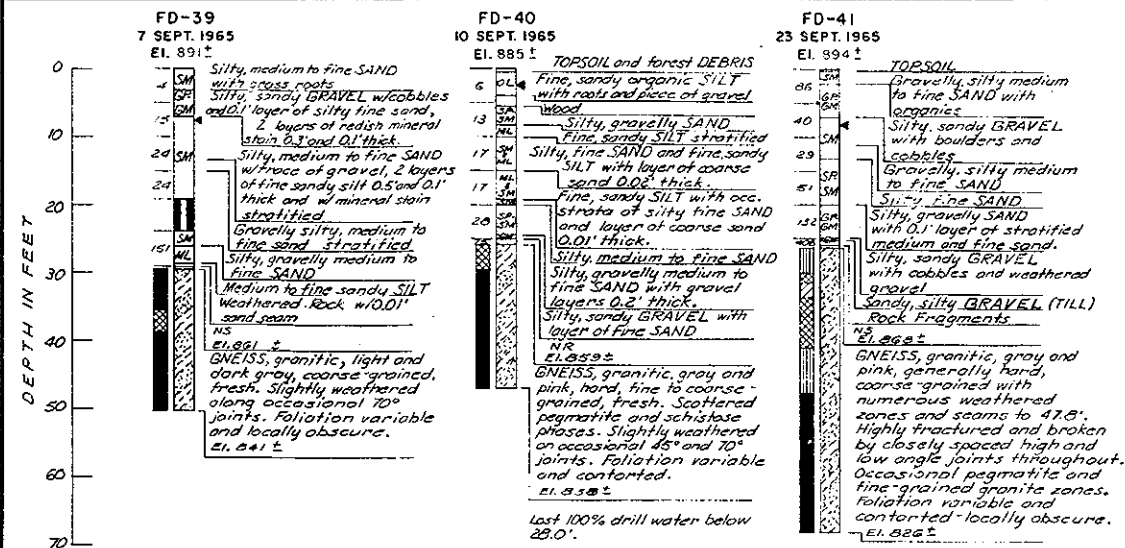 FD-39
7 SEPT. 1965
El. 891±
Silty, medium to fine SAND
with grass roots
Silty, sandy GRAVEL w/cobbles
and 0.1' layer of silty fine sand,
2 layers of redish mineral
stain 0.3' and 0.1' thick.
Silty, medium to fine SAND
w/trace of gravel, 2 layers
of fine sandy silt 0.5' and 0.1'
thick and w/ mineral stain
stratified
Gravelly silty, medium to
fine sand stratified
Silty, gravelly medium to
fine SAND
Medium to fine sandy SILT
Weathered Rock w/0.01'
sand seam
NS
El. 861 ±
GNEISS, granitic, light and
dark gray, coarse-grained,
fresh. Slightly weathered
along occasional 70°
joints. Foliation variable
and locally obscure.
El. 841 ±
4
15
24
24
151
SM
GP
GM
SM
SM
ML
FD-40
10 SEPT. 1965
El. 885 ±
TOPSOIL and forest DEBRIS
Fine, sandy organic SILT
with roots and piece of gravel
Wood
Silty, gravelly SAND
Fine, sandy SILT stratified
Silty, fine SAND and fine, sandy
SILT with layer of coarse
sand 0.02' thick.
Fine, sandy SILT with occ.
strata of silty fine SAND
and layer of coarse sand
0.01' thick.
Silty, medium to fine SAND
Silty, gravelly medium to
fine SAND with gravel
layers 0.2' thick.
Silty, sandy GRAVEL with
layer of fine SAND
NR
El. 859±
GNEISS, granitic, gray and
pink, hard, fine to coarse-
grained, fresh. Scattered
pegmatite and schistose
phases. Slightly weathered
on occasional 45° and 70°
joints. Foliation variable
and contorted.
El. 838±
Lost 100% drill water below
28.0'.
6
13
17
17
28
OL
SM
ML
SM
ML
ML
SM
SP
SM
GM
FD-41
23 SEPT. 1965
El. 894±
TOPSOIL
Gravelly, silty medium
to fine SAND with
organics
Silty, sandy GRAVEL
with boulders and
cobbles
Gravelly, silty medium
to fine SAND
Silty fine SAND
Silty, gravelly SAND
with 0.1' layer of stratified
medium and fine sand.
Silty, sandy GRAVEL
with cobbles and weathered
gravel
Sandy, silty GRAVEL (TILL)
Rock Fragments
NS
El. 868±
GNEISS, granitic, gray and
pink, generally hard,
coarse-grained with
numerous weathered
zones and seams to 47.8'.
Highly fractured and broken
by closely spaced high and
low angle joints throughout.
Occasional pegmatite and
fine-grained granite zones.
Foliation variable and
contorted-locally obscure.
El. 826±
86
40
29
51
132
SM
GP
GM
SM
SP
SM
GP
GM
GM
DEPTH IN FEET
0
10
20
30
40
50
60
70